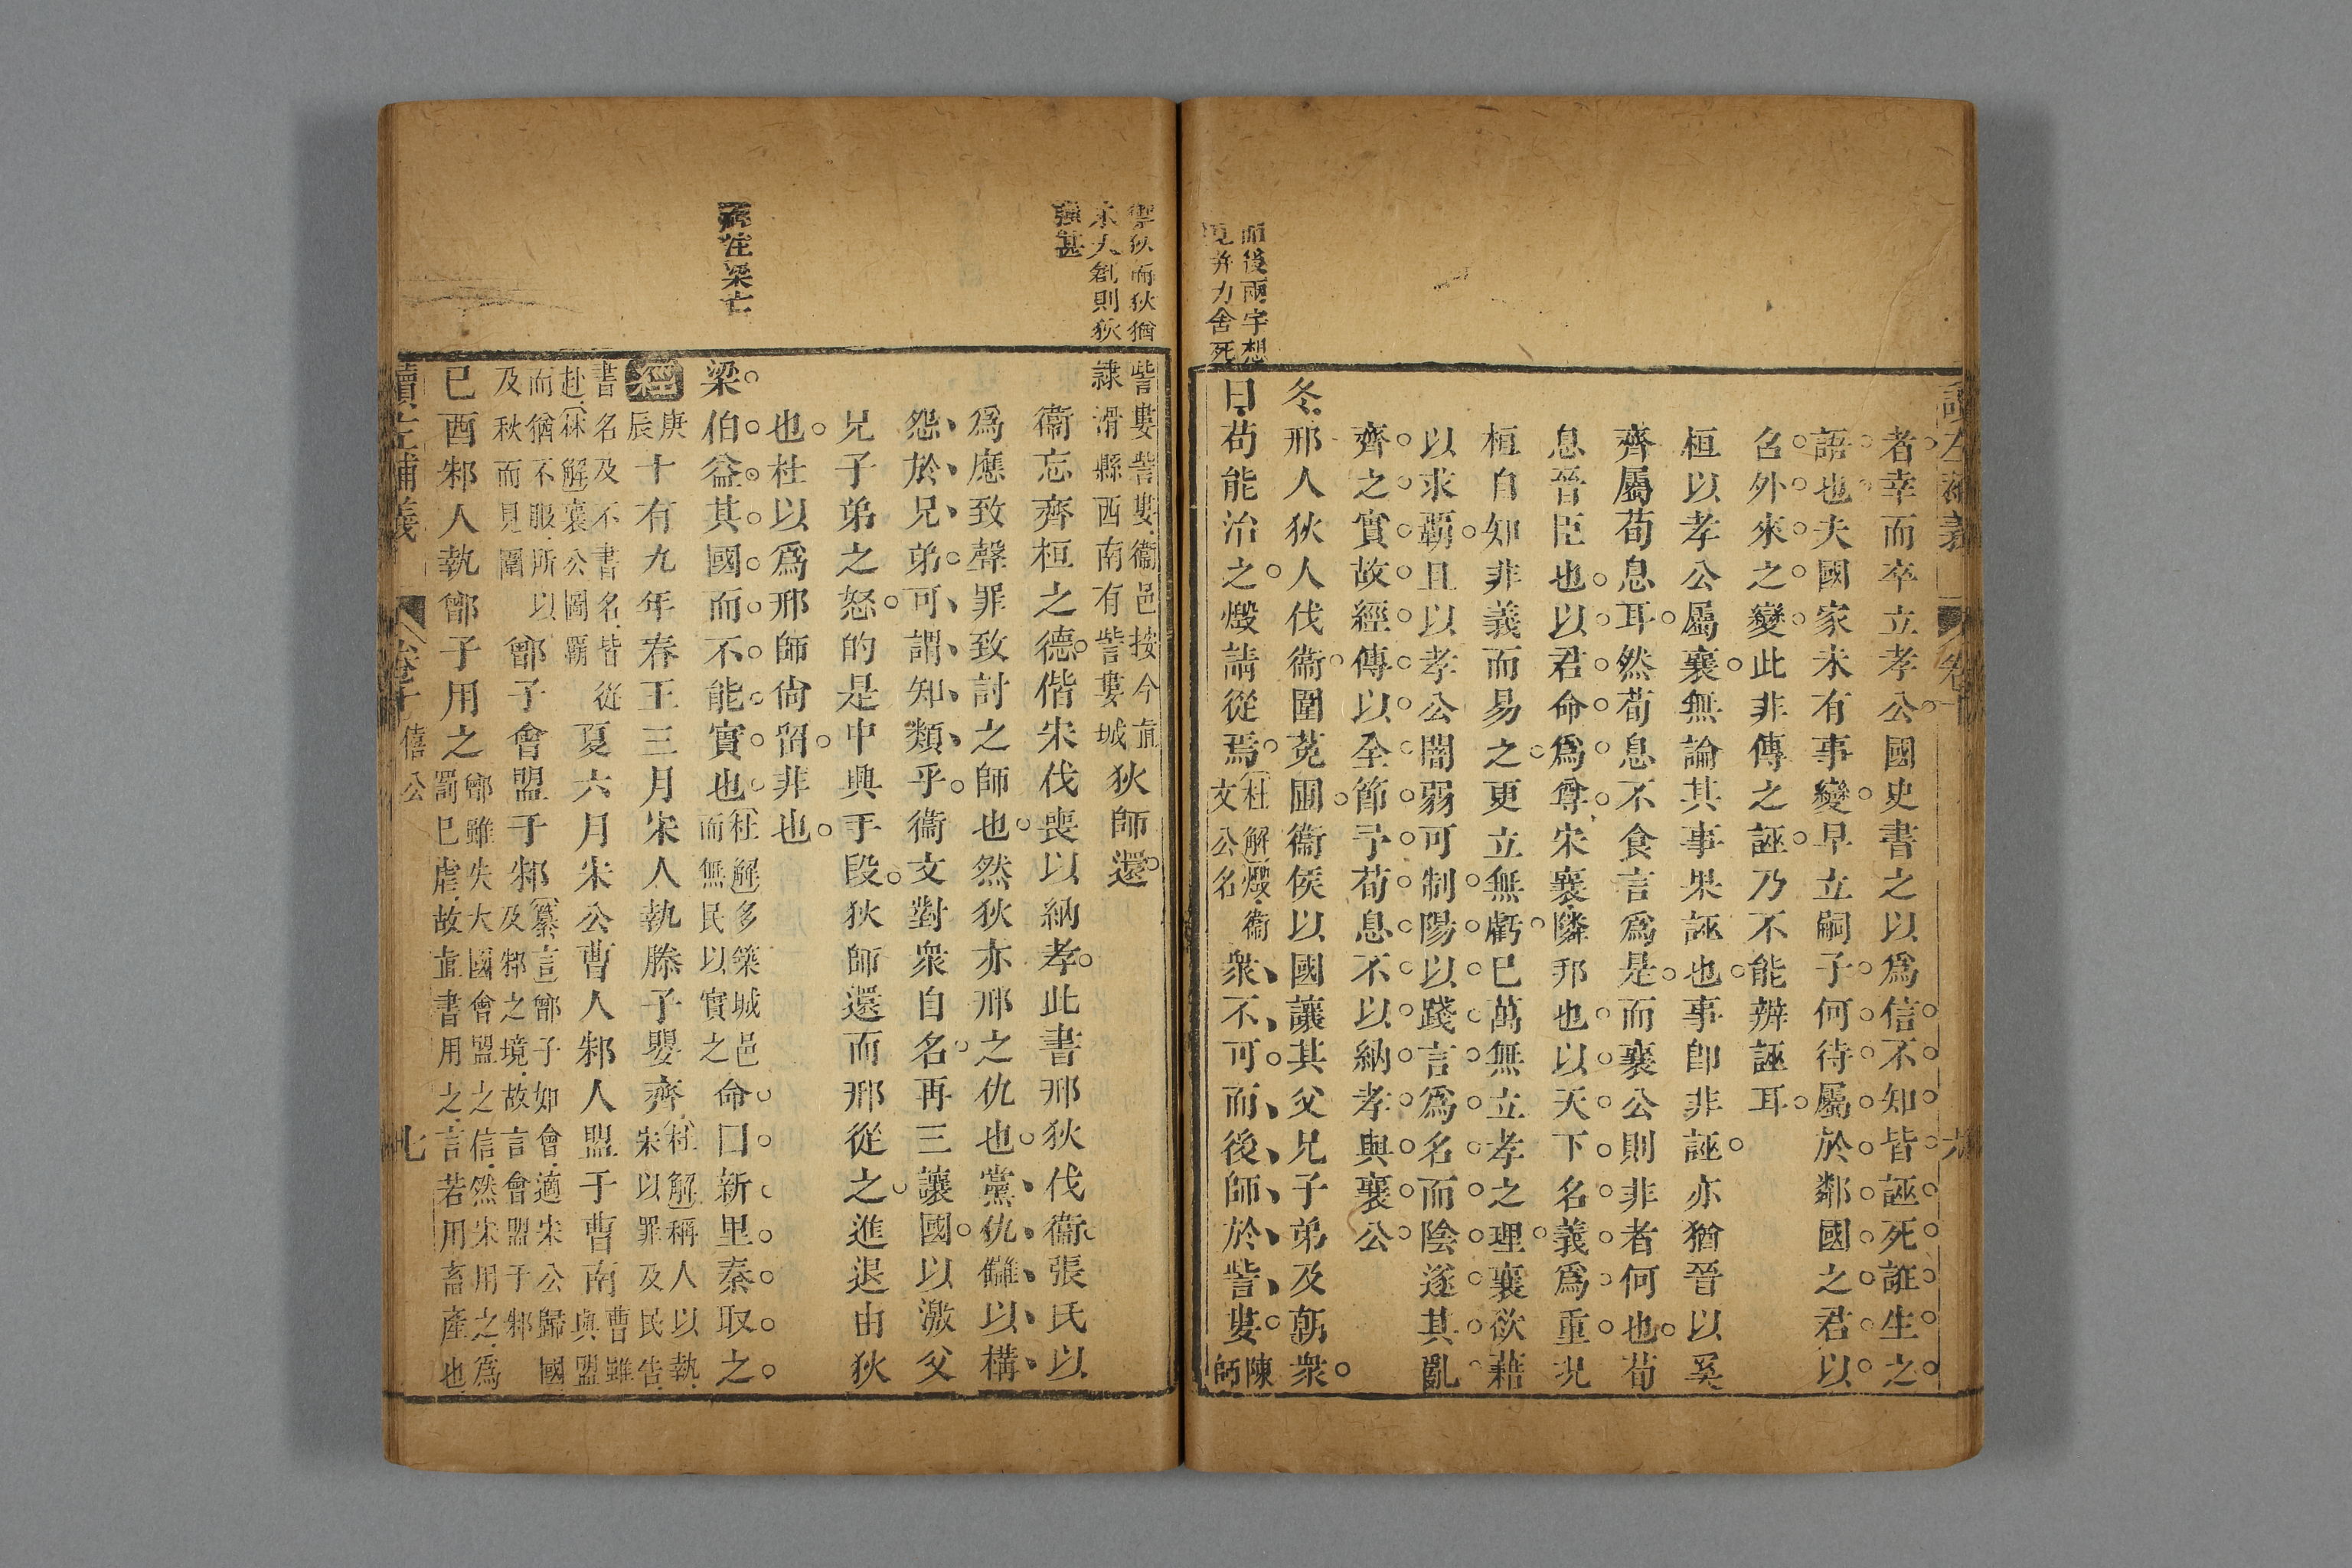 讀左補義
卷十
六
者幸而卒立孝公國史書之以爲信不知皆誣死誑生之
語也夫國家未有事變早立嗣子何待屬於鄰國之君以
召外來之變此非傳之誣乃不能辨誣耳
桓以孝公屬襄無論其事果誣也事卽非誣亦猶晉以奚
齊屬荀息耳然荀息不食言爲是而襄公則非者何也荀
息晉臣也以君命爲尊宋襄隣邦也以天下名義爲重況
桓自知非義而易之更立無虧已萬無立孝之理襄欲藉
以求霸且以孝公闇弱可制陽以踐言爲名而陰遂其亂
齊之實故經傳以全節予荀息不以納孝與襄公
冬邢人狄人伐衞圍菟圃衞侯以國讓其父兄子弟及朝衆
曰苟能治之燬請從焉杜解燬衞文公名衆不可而後師於訾婁陳師
而後兩字想
見并力舍死
禦狄而狄猶
未大創則狄
強甚
訾婁訾婁衞邑按今直隸滑縣西南有訾婁城狄師還
衞忘齊桓之德偕宋伐喪以納孝此書邢狄伐衞張氏以
爲應致聲罪致討之師也然狄亦邢之仇也黨仇讎以構
怨於兄弟可謂知類乎衞文對衆自名再三讓國以激父
兄子弟之怒的是中興手段狄師還而邢從之進退由狄
也杜以爲邢師尙留非也
梁伯益其國而不能實也杜解多築城邑而無民以實之命曰新里秦取之
注梁亡
經庚辰十有九年春王三月宋人執滕子嬰齊杜解稱人以執宋以罪及民告
書名及不書名皆從赴林解襄公圖霸而猶不服所以及秋而見圍夏六月宋公曹人邾人盟于曹南曹雖與盟
鄫子會盟于邾纂言鄫子如會適宋公歸國及邾之境故言會盟于邾
已酉邾人執鄫子用之鄫雖失大國會盟之信然宋用之爲罰已虐故直書用之言若用畜產也
讀左補義
卷十
僖公
七